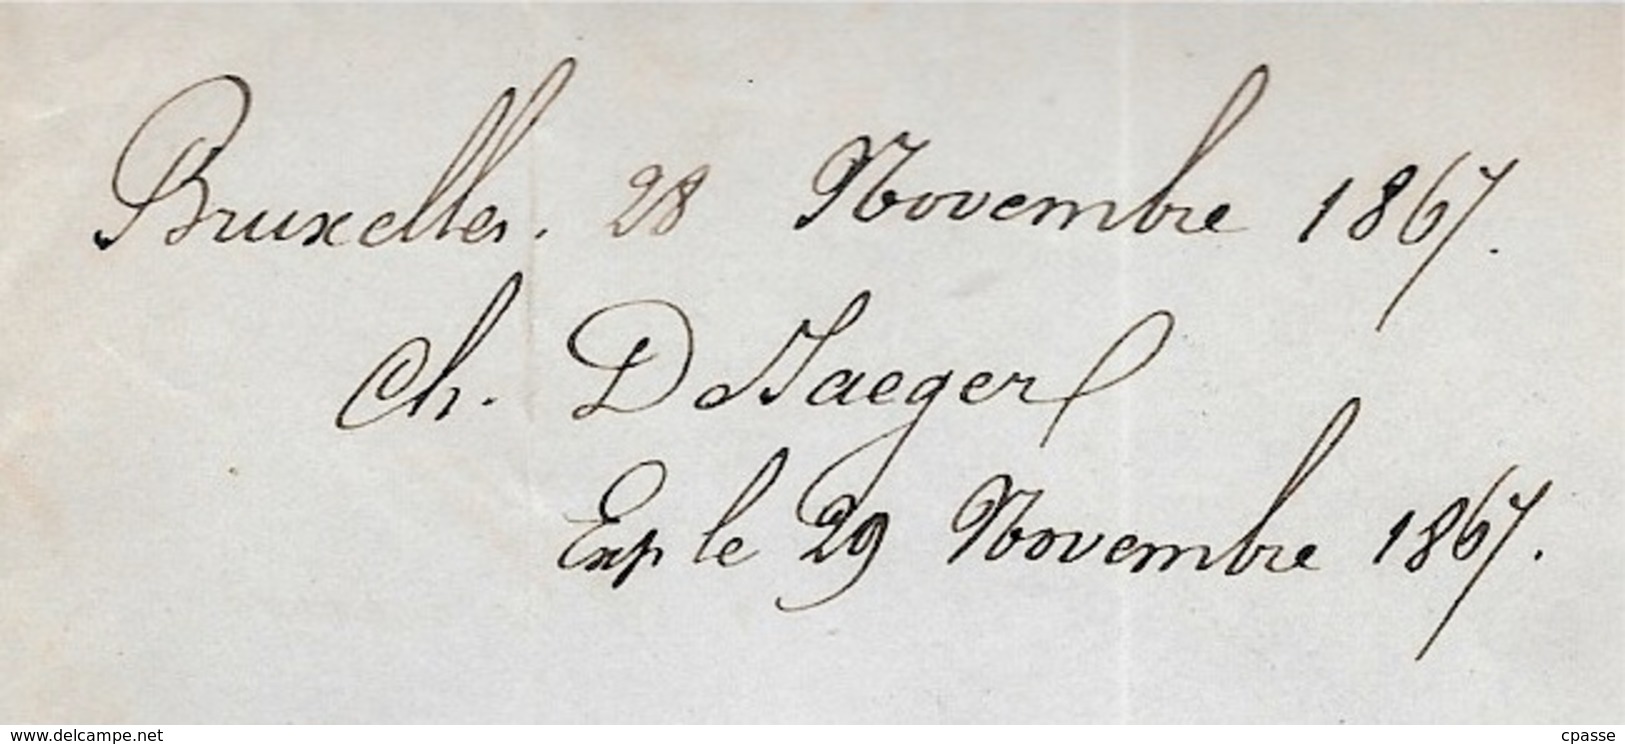 Bruxelles. 28 Novembre 1867.
Ch. DeJaeger
Exp le 29 Novembre 1867.
www.delcampe.net
cpasse